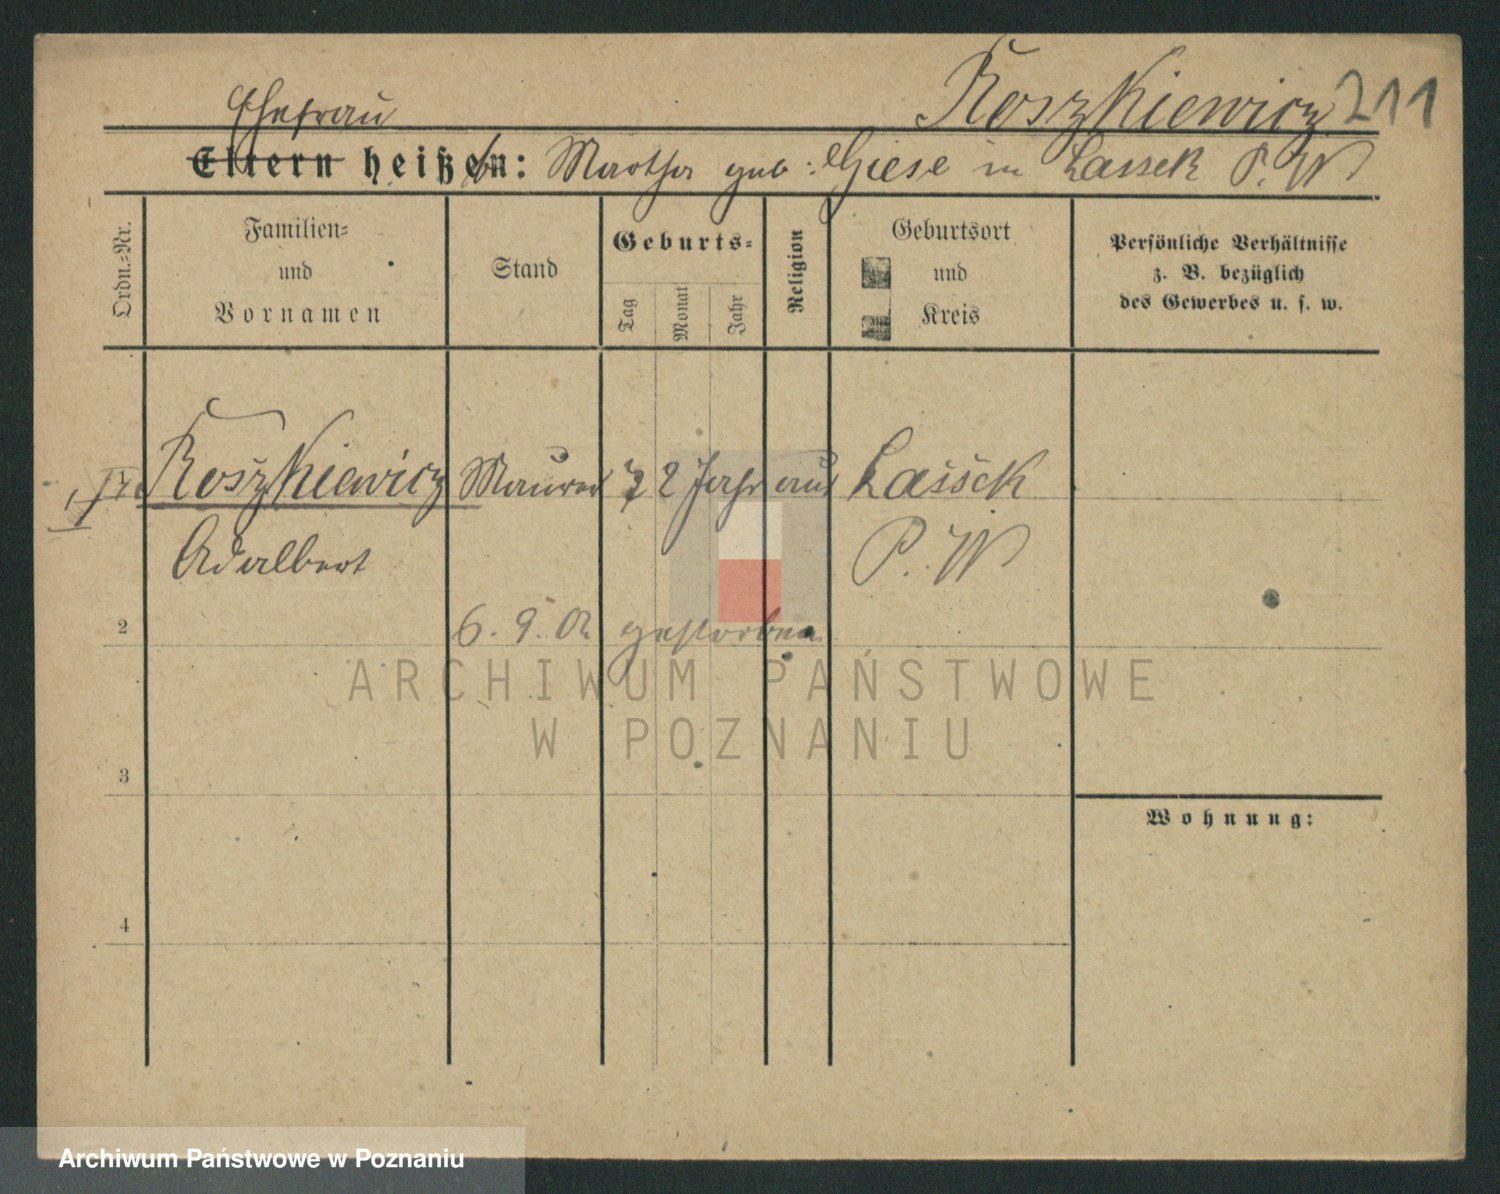 Roszkiewicz 211
Ehefrau
Eltern heißen: Martha geb: Giese in Lassek P. W
Ordn.-Nr.
Familien-
und
Vornamen
Stand
Geburts-
Tag
Monat
Jahr
Religion
Geburtsort
und
Kreis
Persönliche Verhältnisse
z. B. bezüglich
des Gewerbes u. s. w.
Roszkiewicz Maurer 72 Jahr aus Lassek
Adalbert P. W
2
6. 9. 02 gestorben
ARCHIWUM PAŃSTWOWE
W POZNANIU
3
Wohnung:
4
Archiwum Państwowe w Poznaniu